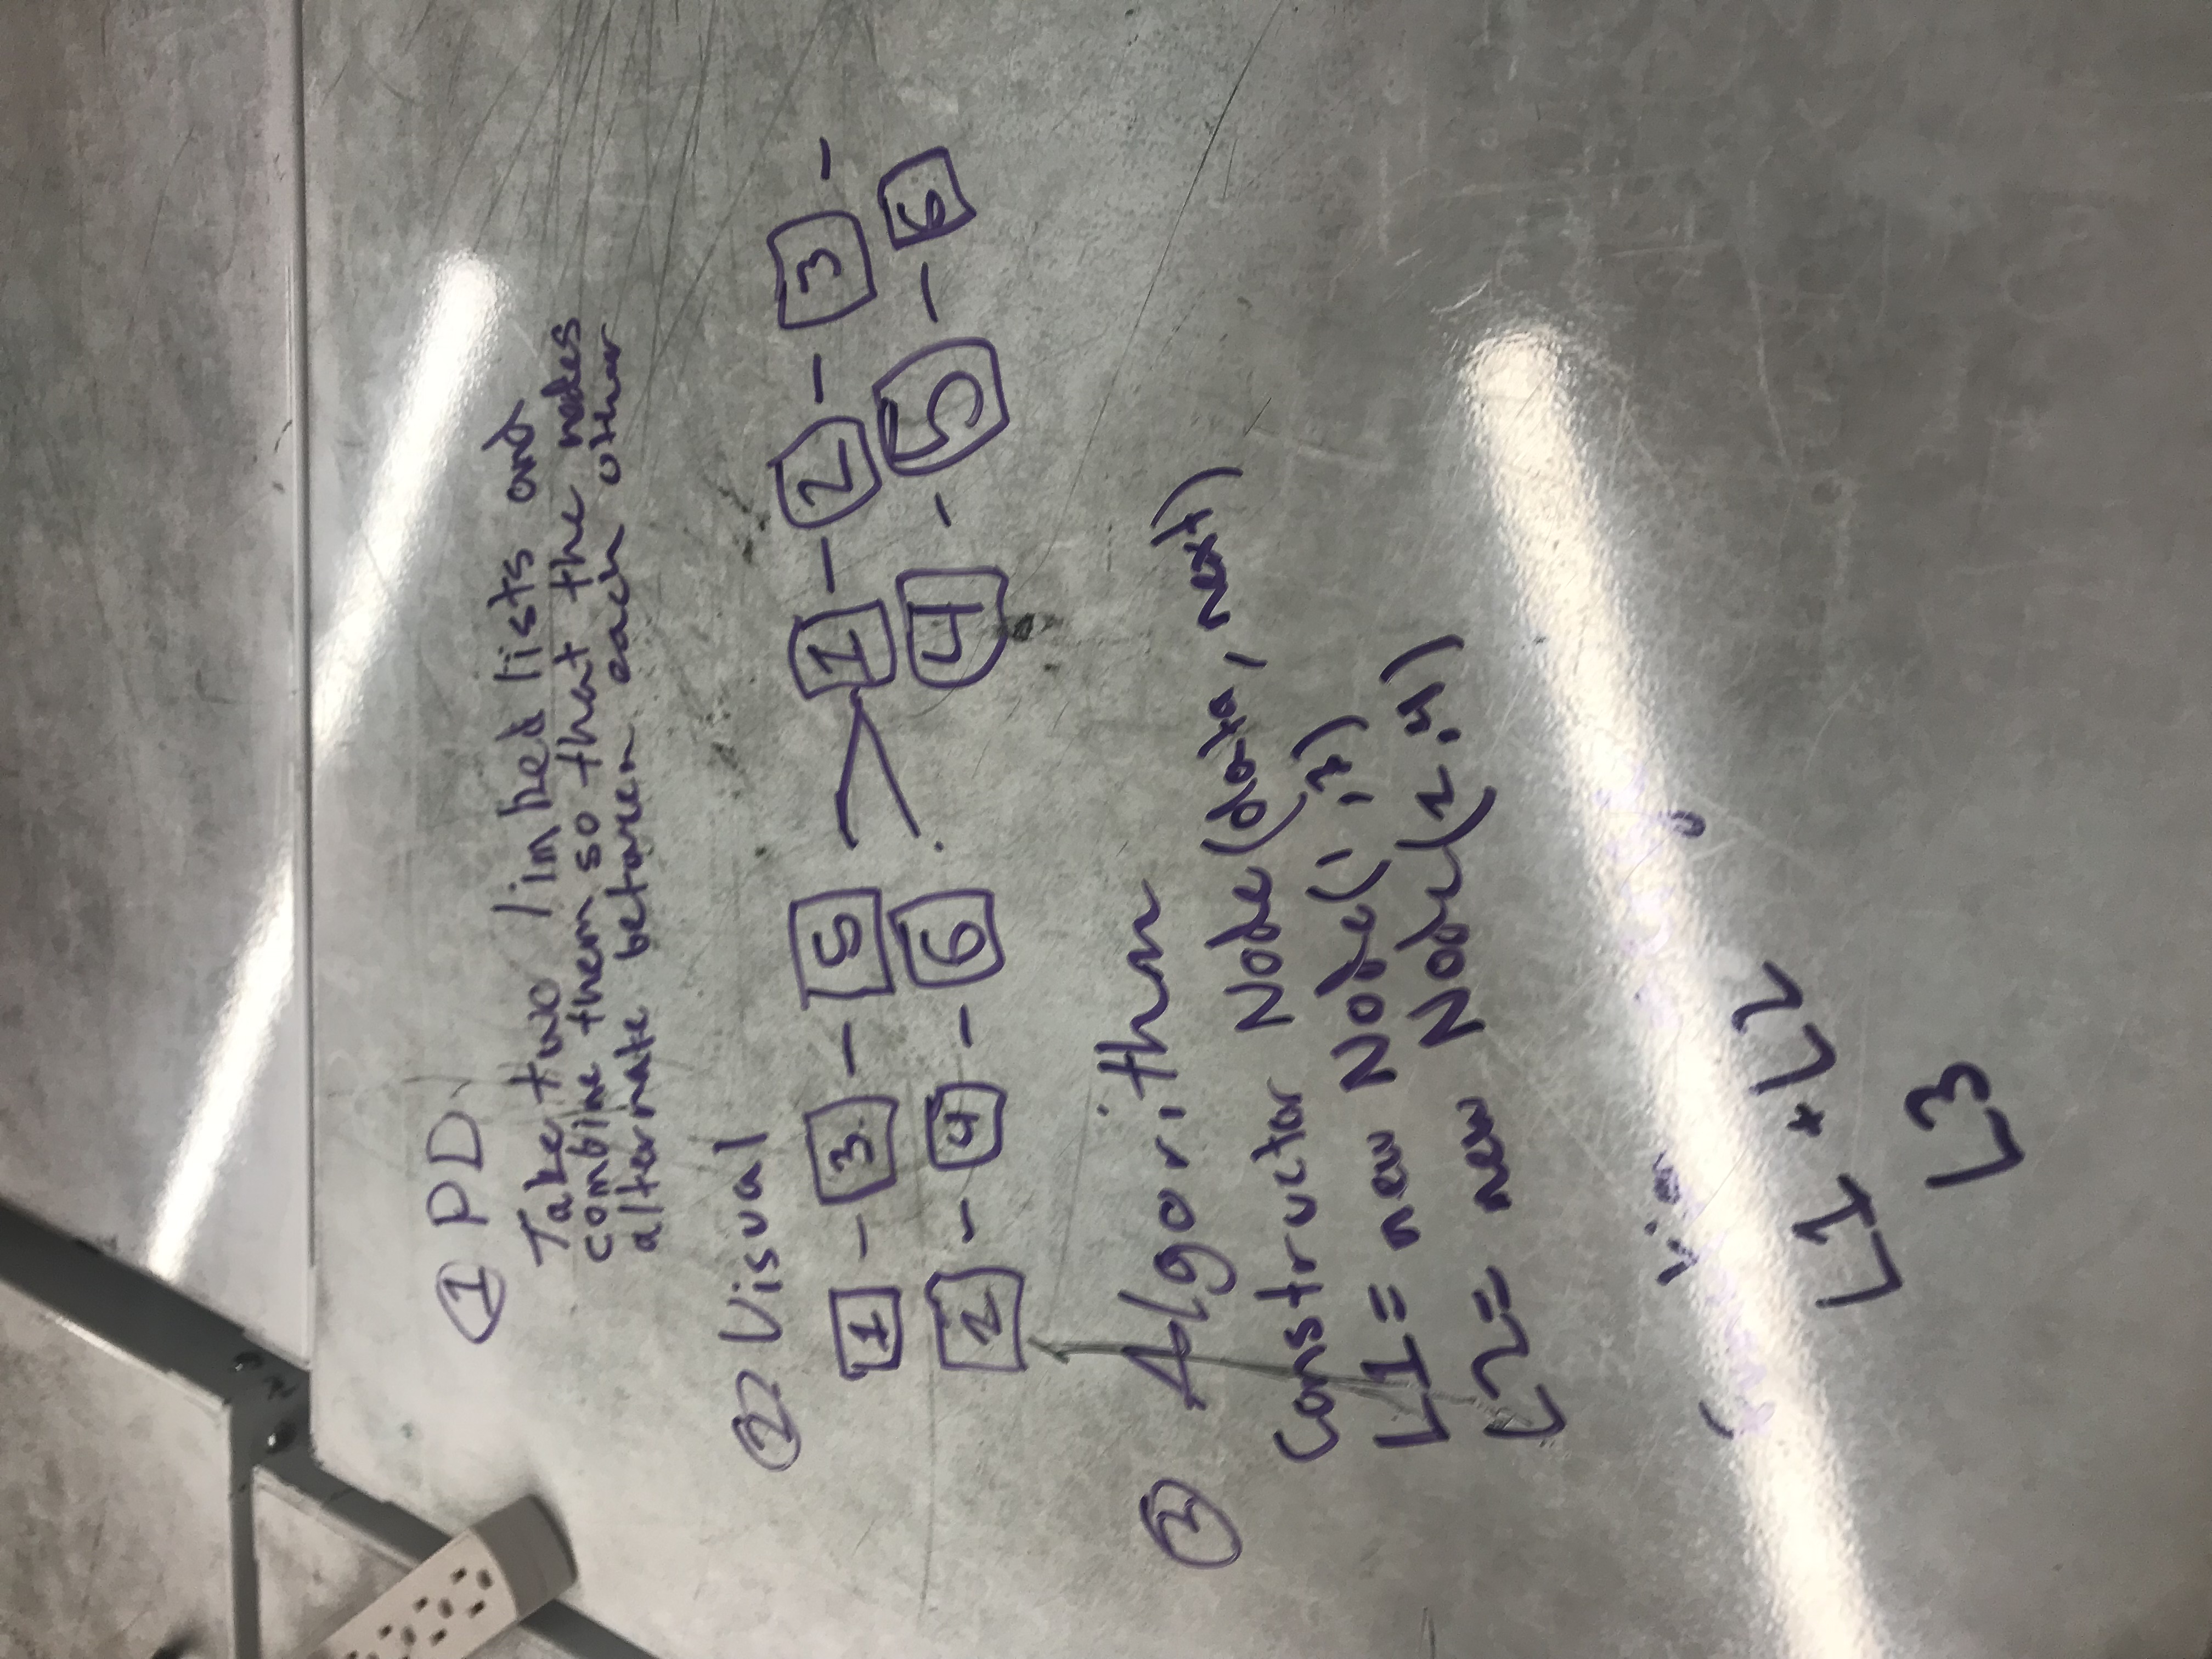 ① PD
Take two linked lists and
combine them so that the nodes
alternate between each other
② Visual
1 - 3 - 5 > 1 - 2 - 3 -
2 - 4 - 6 4 - 5 - 6
③ Algorithm
Constructor Node(data, next)
L1 = new Node(1,3)
L2 = new Node(2,4)
Function merge
L1 + L2
L3